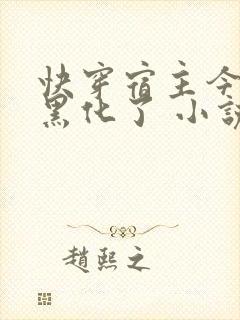 快穿宿主今
黑化了 小說
趙熙之